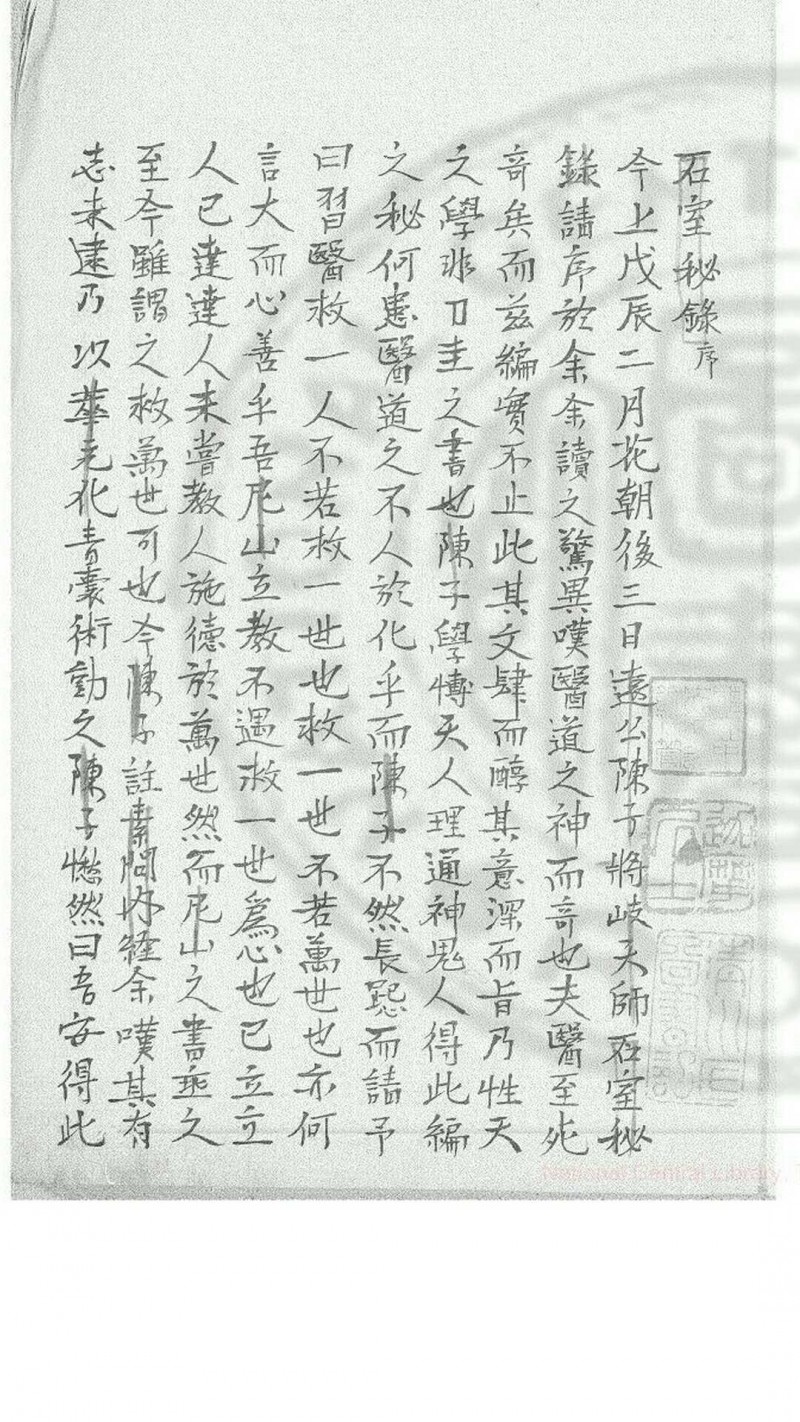 石室秘錄序
今上戊辰二月花朝後三日遠公陳子將岐天師石室秘
錄請序於余余讀之驚異嘆醫道之神而奇也夫醫至死
奇矣而兹編實不止此其文肆而醇其意深而旨乃性天
之學非刀圭之書也陳子學博天人理通神鬼人得此編
之秘何患醫道之不人於化乎而陳子不然長跽而請予
曰習醫救一人不若救一世也救一世不若萬世也亦何
言大而心善乎吾尼山立教不過救一世爲心也已立立
人已達達人未嘗教人施德於萬世然而尼山之書垂之
至今雖謂之救萬世可也今陳子註素問内經余嘆其有
志未逮乃以華元化青囊術勸之陳子愀然曰吾安得此
National Central Library,